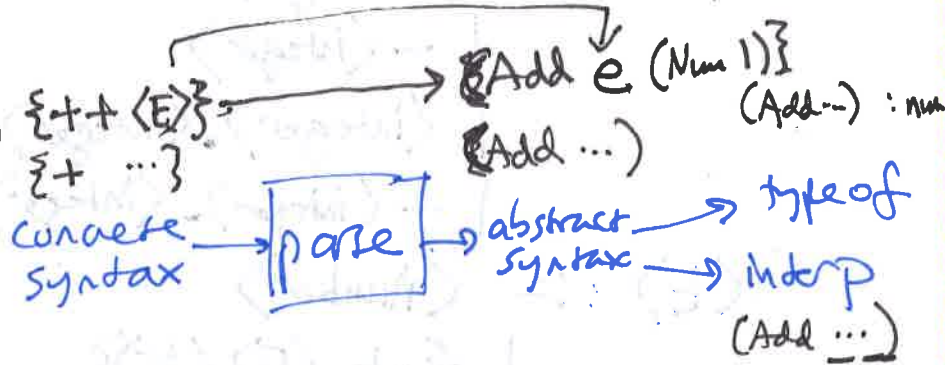 {++ <E>} → {Add e (Num 1)}
(Add...) : num
{+ ...} (Add ...)
concrete syntax → parse → abstract syntax → typeof
→ interp
(Add ...)